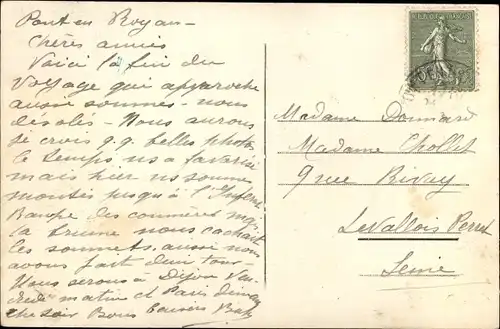 Pont en Royans
Chères amies
Voici la fin du
voyage qui approche
aussi sommes-nous
désolés - Nous aurons
je crois q.q. belles photos
le temps ns a favorisé
mais hier ns sommes
montés jusqu'à l'
des
la brume nous cachait
les sommets, aussi nous
avons fait demi tour -
Nous serons à Dijon Ven-
dredi matin et Paris diman
che soir Bons baisers
REPUBLIQUE FRANCAISE
Madame
Madame Chollet
9 rue Rivay
Levallois Perret
Seine